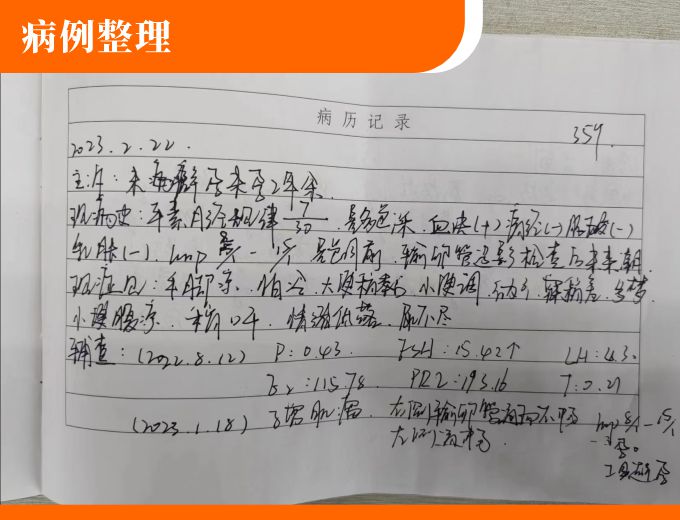 病例整理
病历记录
359.
2023.2.22.
主诉：未避孕未孕2年余.
现病史：平素月经规律 7/30. 量多色深. 血块(+) 痛经(-) 腰酸(-)
乳胀(-). lmp 8/1 - 15/1 量色同前. 输卵管造影检查后未来潮.
现症见：手脚凉. 怕冷. 大便 小便调. 多梦
小腹凉. 稍口干. 情绪低落. 尿不尽
辅查：(2022.8.12) P:0.43. FSH:15.42↑ LH:4.30
E2:115.78 PRL:193.16 T:0.21
(2023.1.18) 子宫肌瘤. 输卵管通而不畅 lmp 8/1-15/1
左侧 孕
工具避孕